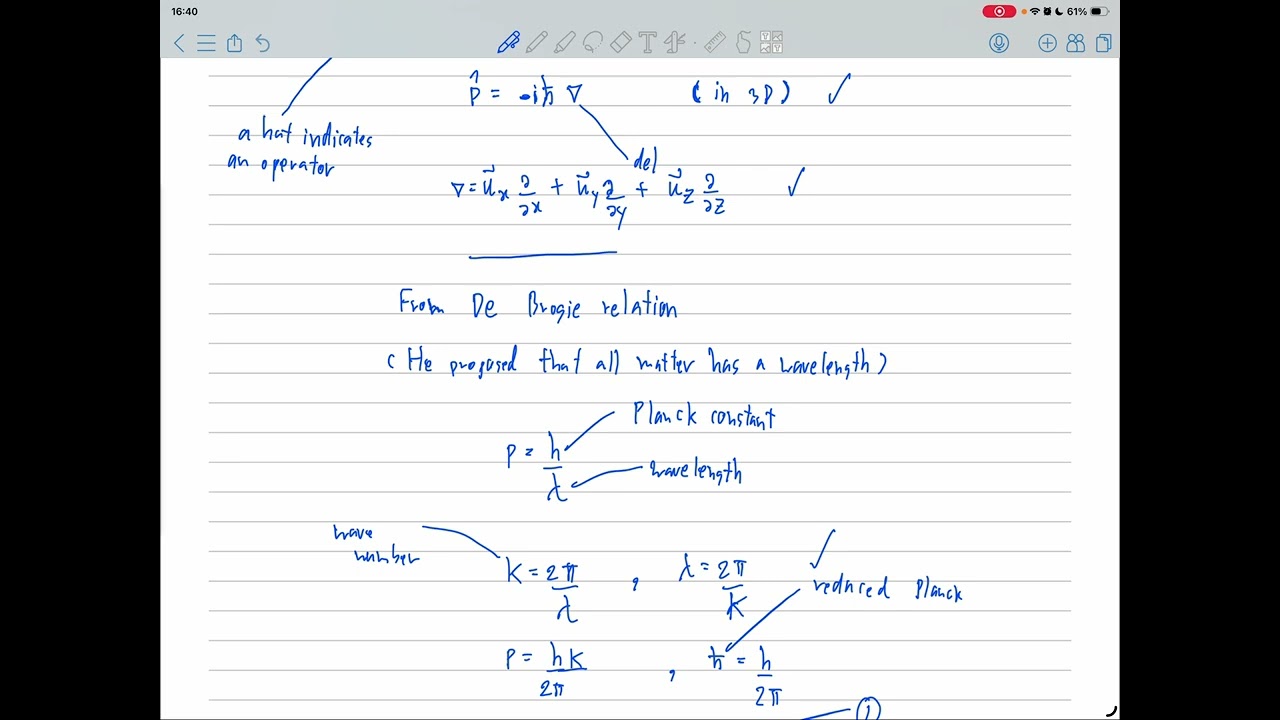 16:40
61%
p̂ = -iħ ∇ (in 3D) ✓
a hat indicates
an operator
del
∇ = u⃗x ∂/∂x + u⃗y ∂/∂y + u⃗z ∂/∂z ✓
From De Brogie relation
(He proposed that all matter has a wavelength)
Planck constant
p = h/λ
wavelength
wave
number
K = 2π/λ , λ = 2π/K ✓
reduced Planck
P = hK/2π , ħ = h/2π
①